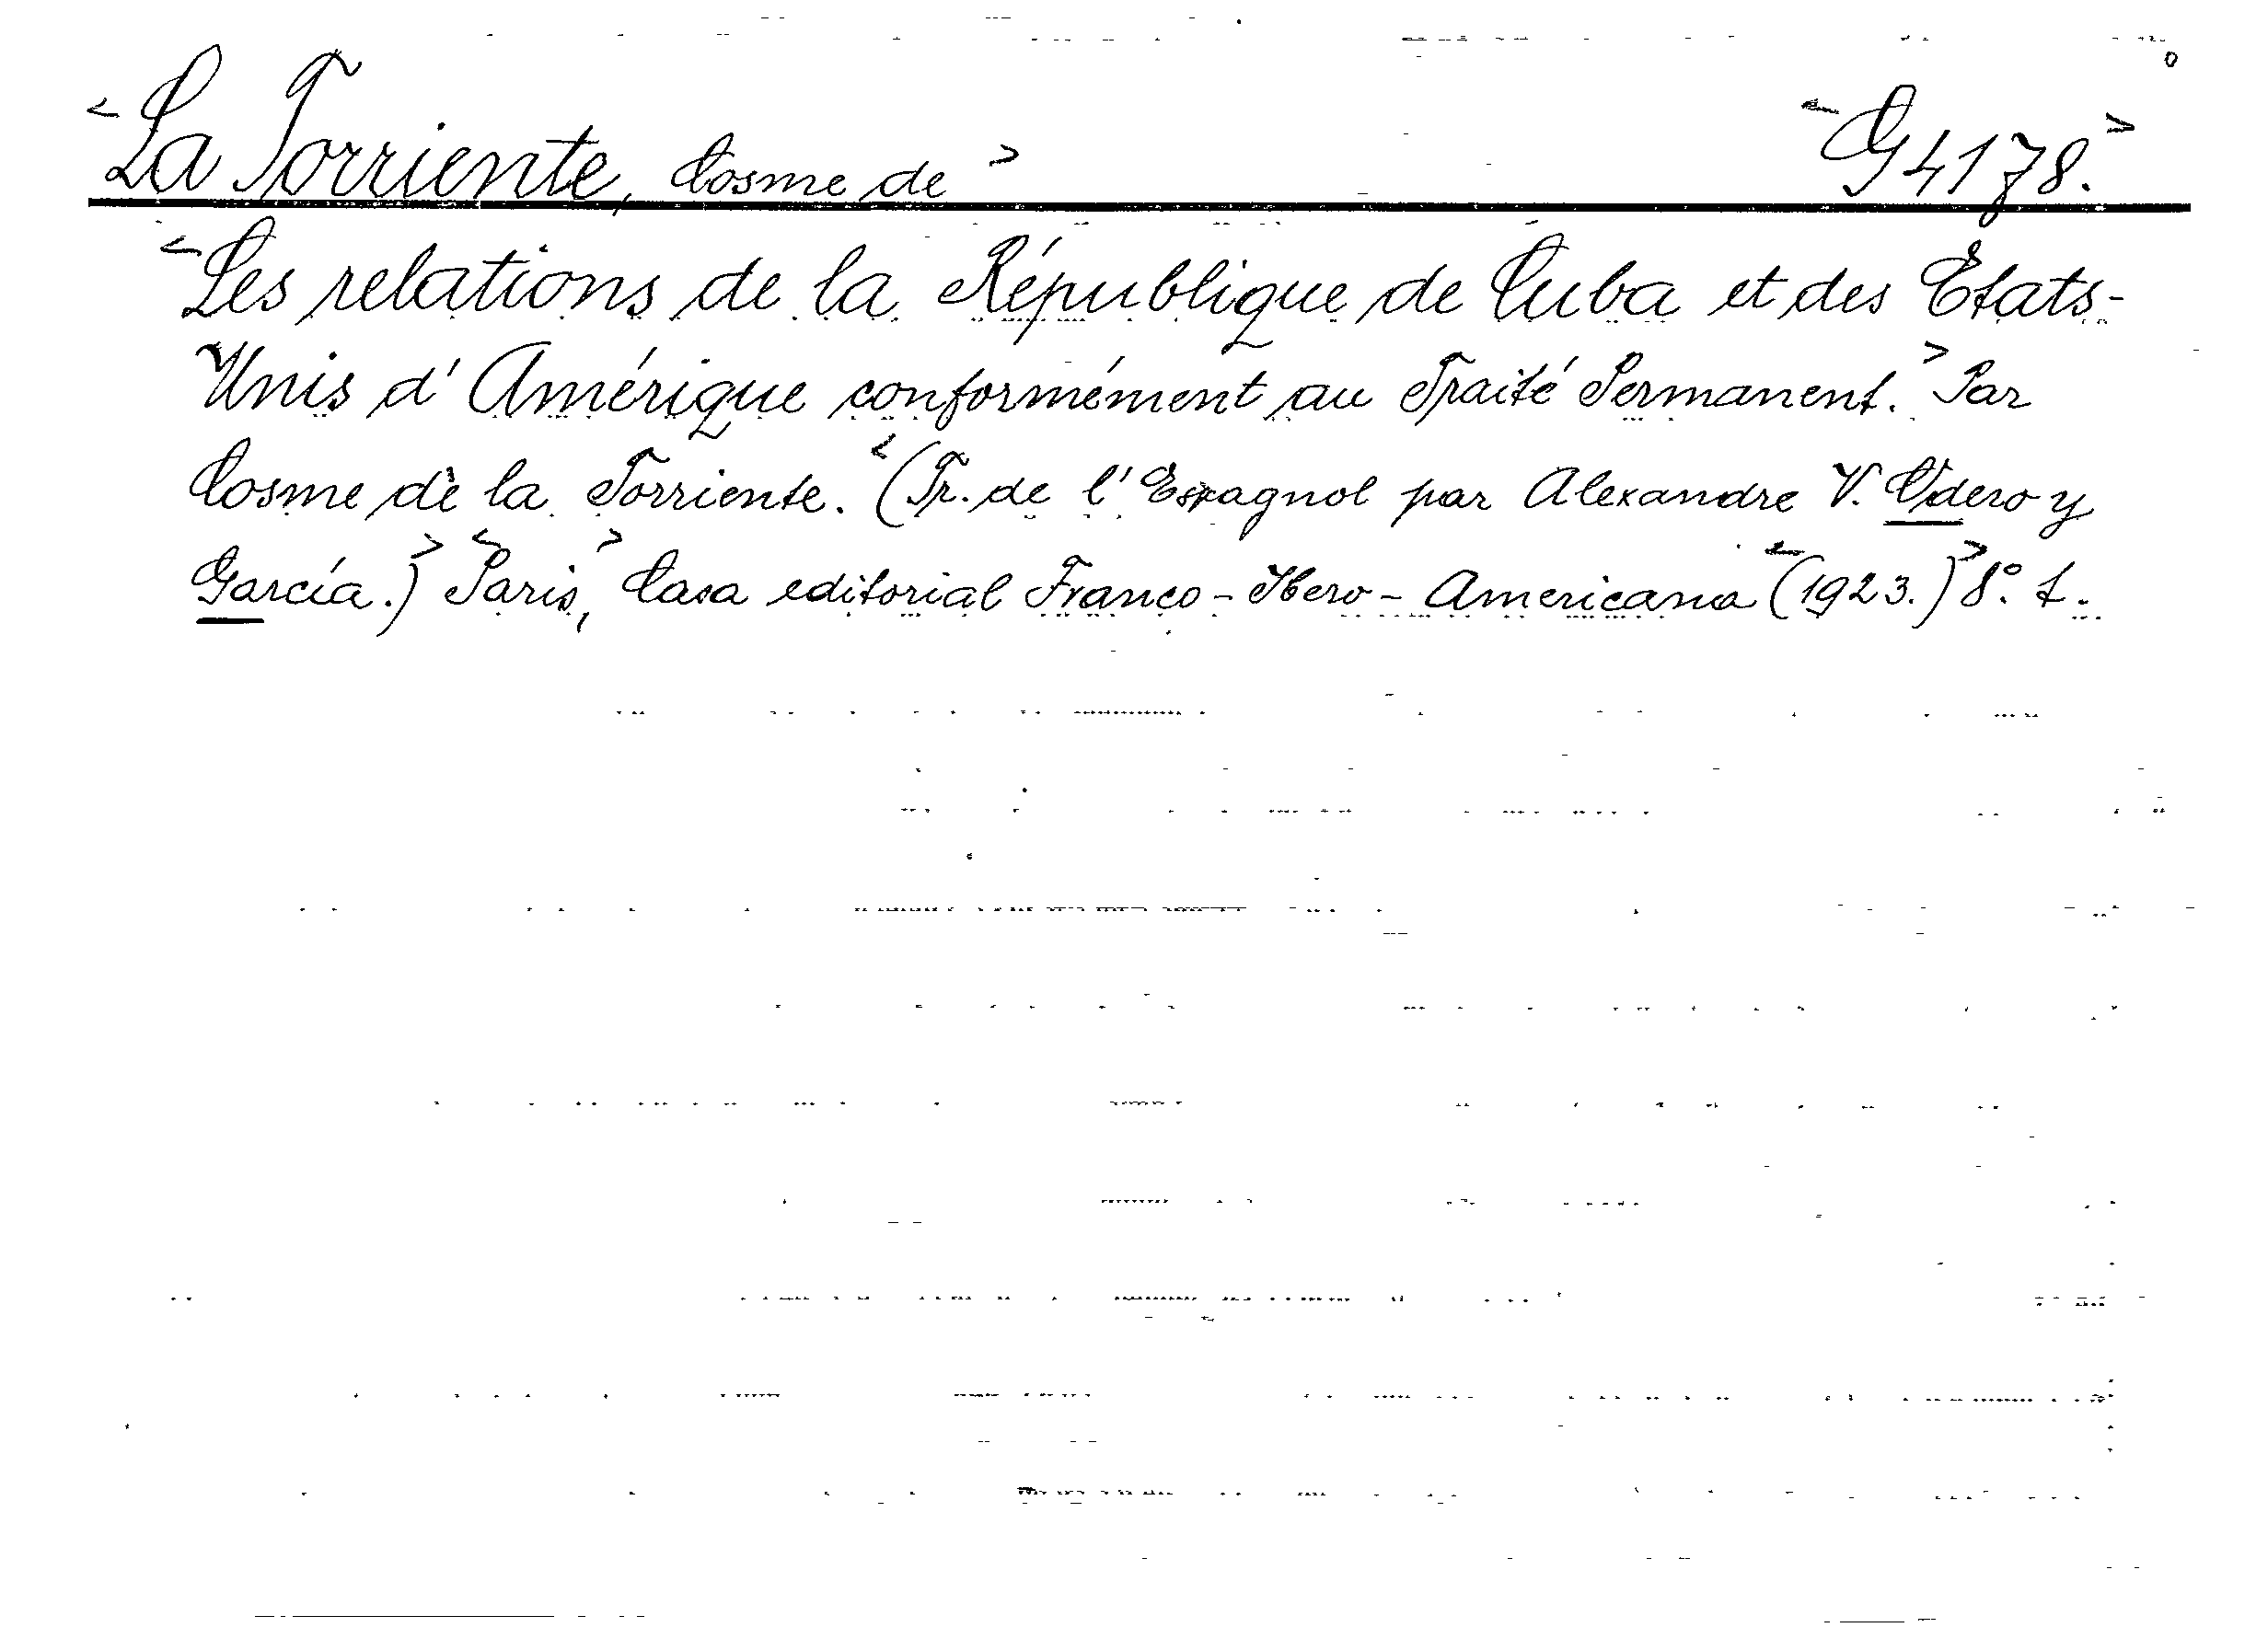 <La Torriente, Cosme de> <G 4178.>
<Les relations de la République de Cuba et des Etats-
Unis d'Amérique conformément au Traité Permanent.> Par
Cosme de la Torriente. <(Tr. de l'Espagnol par Alexandre V. Odero y
García.)> <Paris,> Casa editorial Franco-Ibero-Americana <(1923.)> 8°. L.